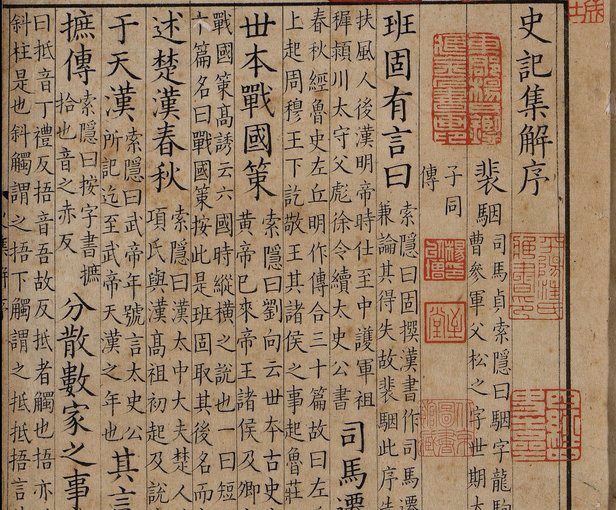 史記集解序
裴駰
司馬貞索隱曰駰字龍駒
曹參軍父松之字世期太
子同
傳
班固有言曰
索隱曰固撰漢書作司馬遷
兼論其得失故裴駰此序先
扶風人後漢明帝時仕至中護軍祖
穉潁川太守父彪徐令續太史公書
司馬遷
春秋經魯史左丘明作傳合三十篇故曰左
上起周穆王下訖敬王其諸侯之事起魯莊
世本戰國策
索隱曰劉向云世本古史
黃帝已來帝王諸侯及卿
戰國策高誘云六國時縱橫之說也一曰短
六篇名曰戰國策按此是班固取其後名而
述楚漢春秋
索隱曰漢太中大夫楚人
項氏與漢高祖初起及說
于天漢
索隱曰武帝年號言太史公
所記迄至武帝天漢之年也
其言
摭傳
索隱曰按字書摭
拾也音之赤反
分散數家之事
曰抵音丁禮反捂音吾故反抵者觸也捂亦
斜柱是也斜觸謂之捂下觸謂之抵抵捂言